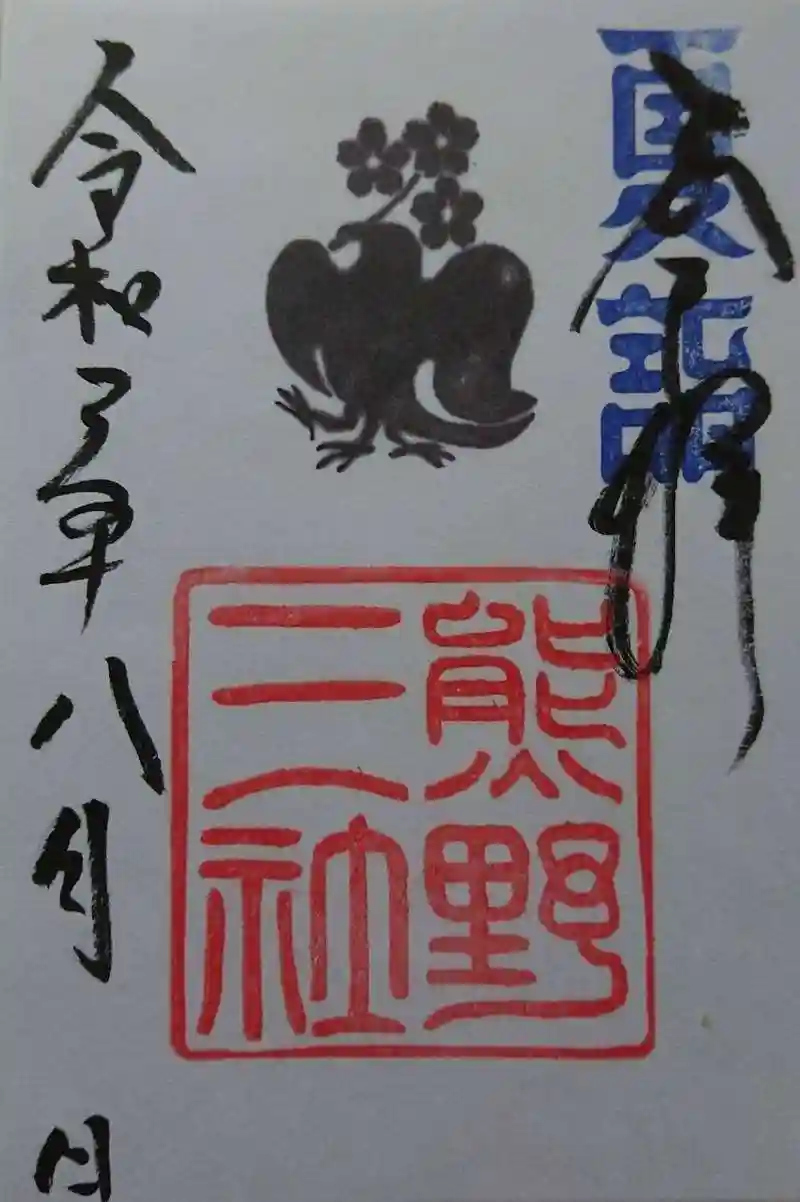 夏詣
奉拝
熊野
三社
令和三年八月 日